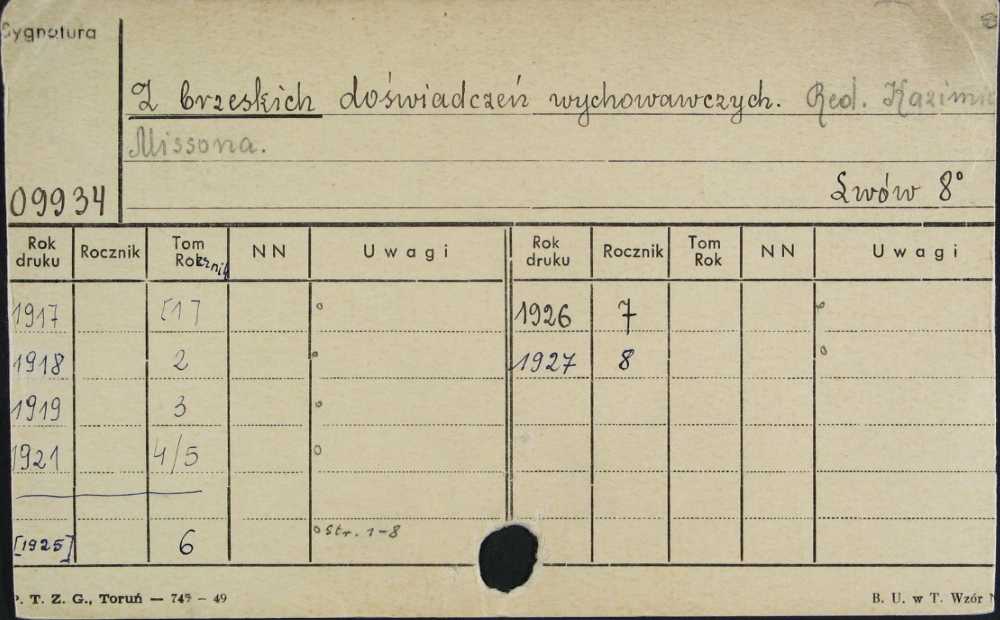 Sygnatura
Z brzeskich doświadczeń wychowawczych. Red. Kazimie
Missona.
09934
Lwów 8°
Rok druku Rocznik Tom Rok NN Uwagi Rok druku Rocznik Tom Rok NN Uwagi
1917 [1] o 1926 7 o
1918 2 o 1927 8 o
1919 3 o
1921 4/5 o
[1925] 6 o Str. 1-8
P. T. Z. G., Toruń — 749 – 49
B. U. w T. Wzór